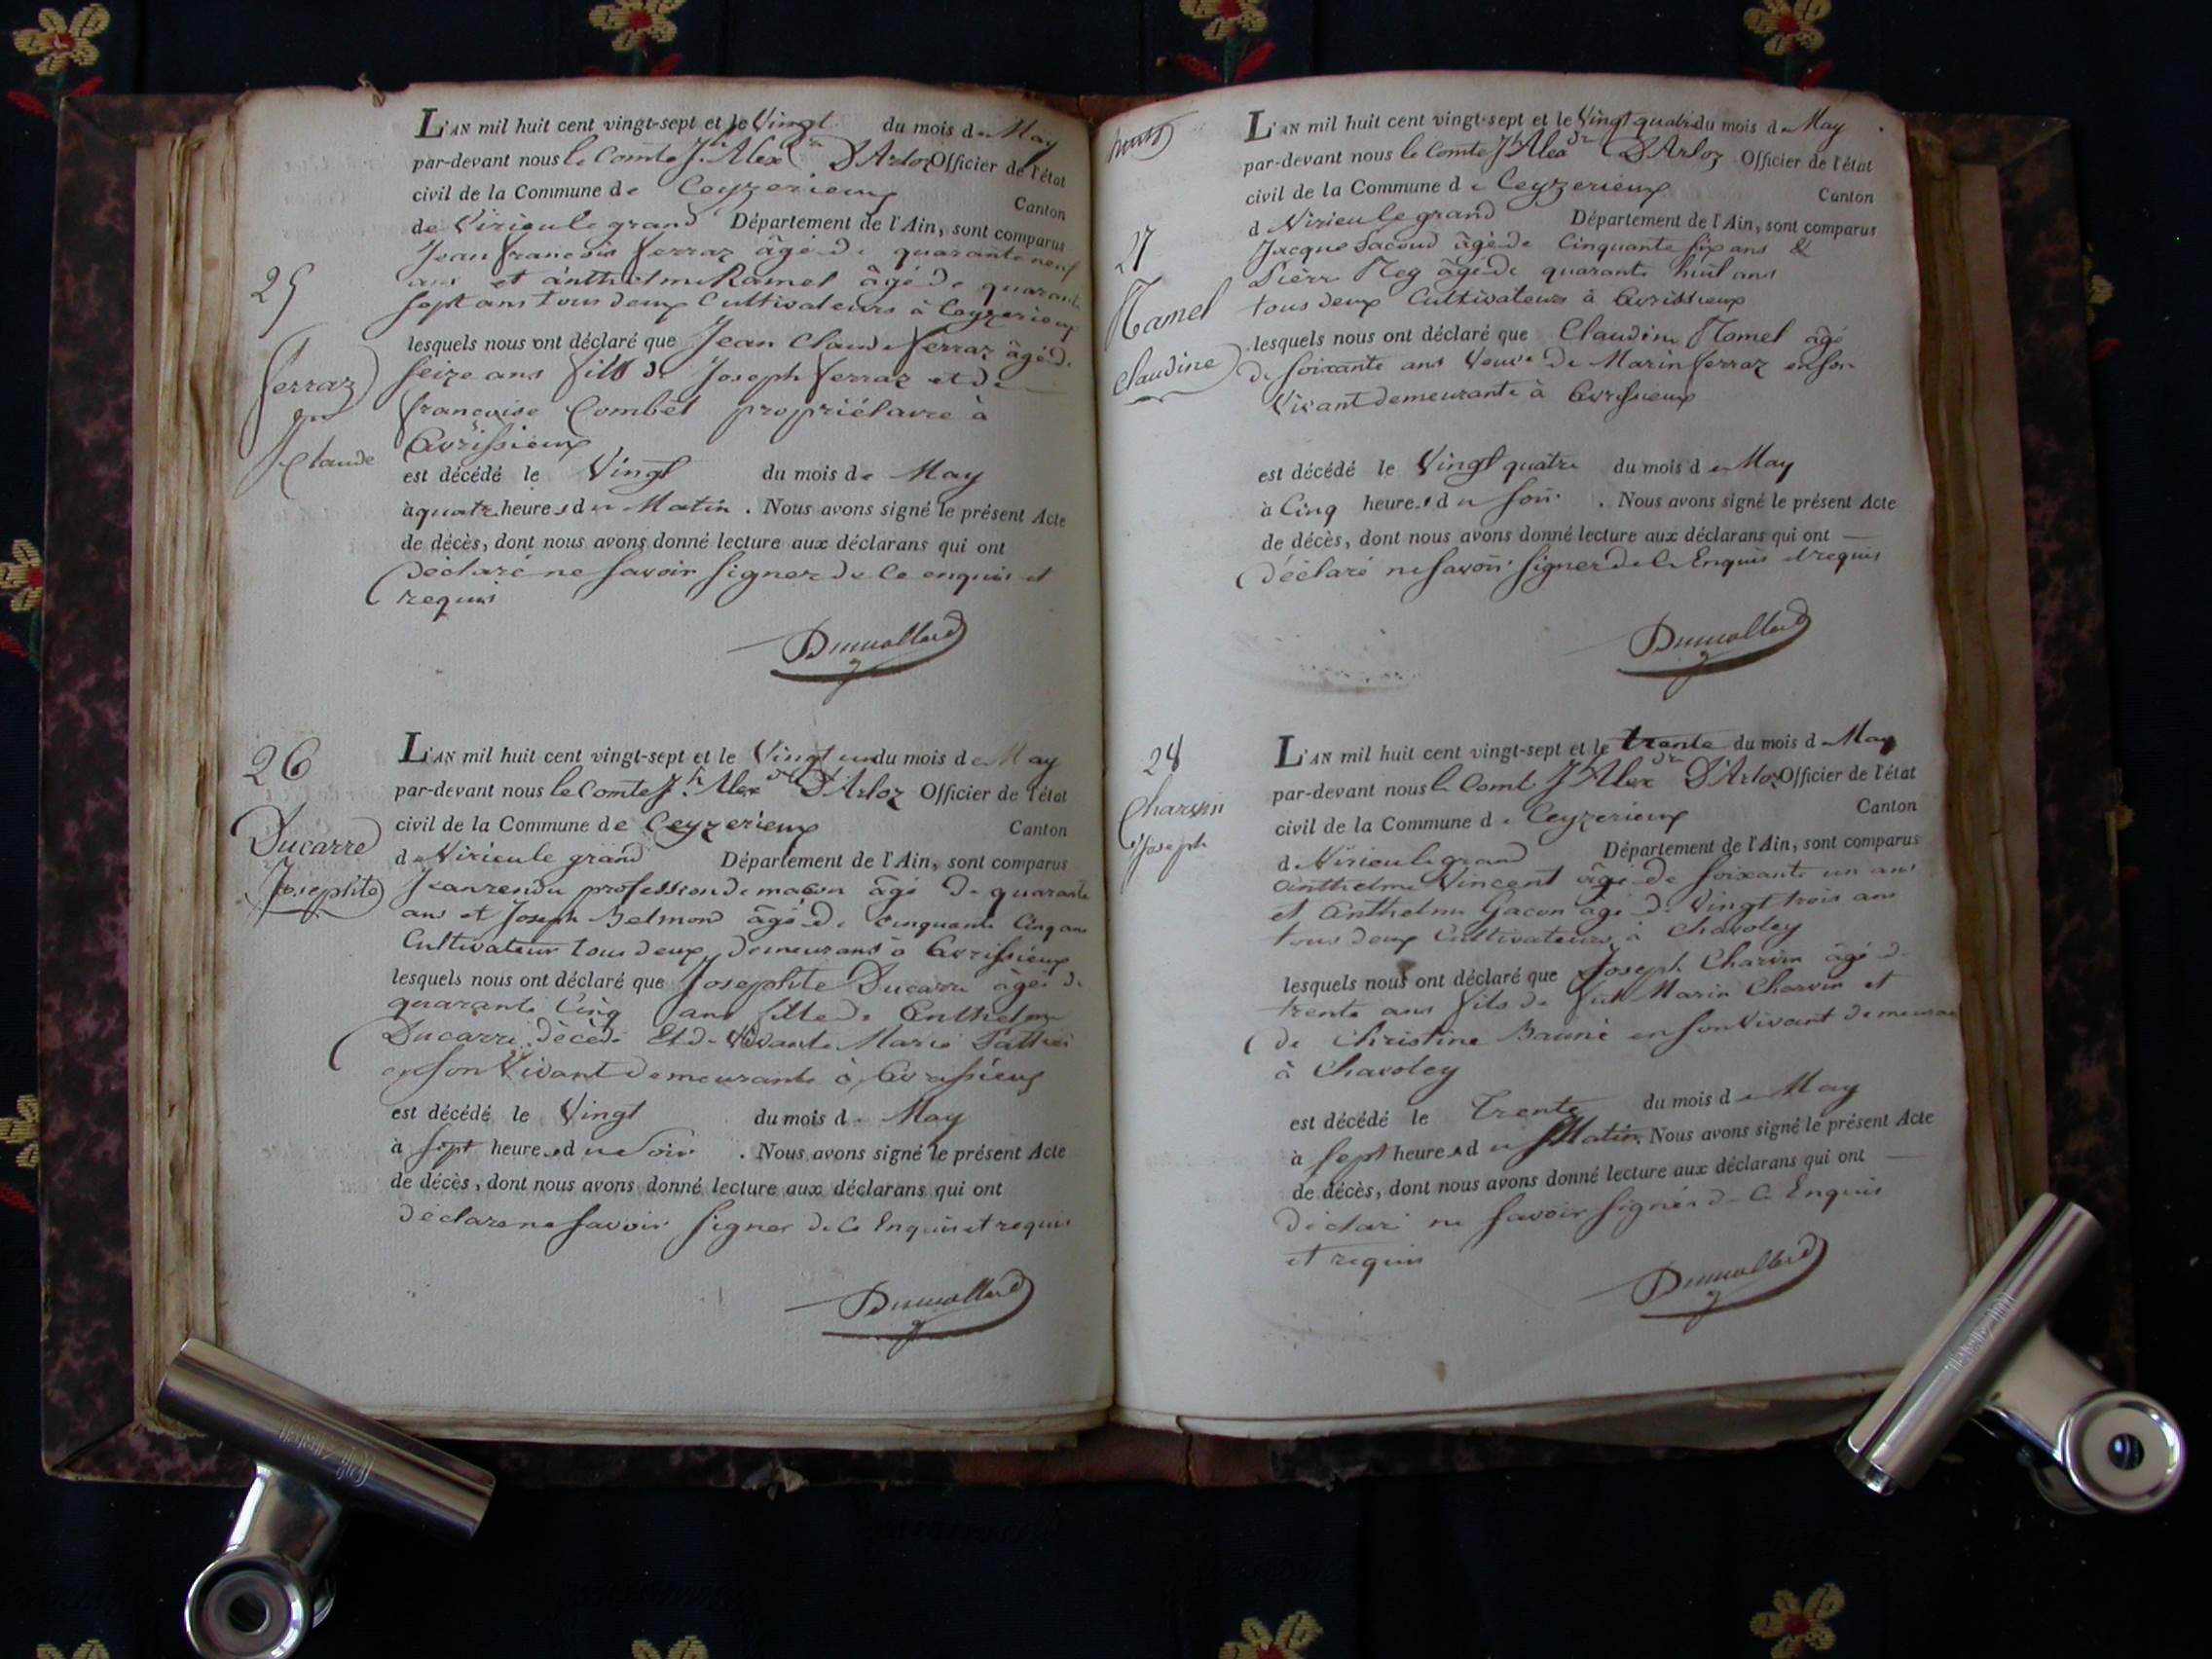 L'AN mil huit cent vingt-sept et le Vingt du mois de May
par-devant nous le Comte Jh. Alexdre D'Arloz Officier de l'état
civil de la Commune de Ceyzerieux Canton
de Virieu le grand Département de l'Ain, sont comparus
Jean françois ferraz âgé de quarante neuf
ans et anthelme Ramel âgé de quarante
sept ans tous deux Cultivateurs à Ceyzerieux
lesquels nous ont déclaré que Jean Claude ferraz âgé de
seize ans fils de Joseph ferraz et de
françoise Combet propriétaire à
Avrissieux
est décédé le Vingt du mois de May
à quatre heures du Matin. Nous avons signé le présent Acte
de décès, dont nous avons donné lecture aux déclarans qui ont
déclaré ne savoir signer de ce enquis et
requis
25
ferraz
jn
Claude
Dumollard
26
Ducarre
Josephte
L'AN mil huit cent vingt-sept et le Vingt un du mois de May
par-devant nous le Comte Jh. Alexdre D'Arloz Officier de l'état
civil de la Commune de Ceyzerieux Canton
de Virieu le grand Département de l'Ain, sont comparus
Jean rendu profession de maçon âgé de quarante
ans et Joseph Belmond âgé de cinquante Cinq ans
Cultivateur tous deux demeurans à Avrissieux
lesquels nous ont déclaré que Josephte Ducarre âgée de
quarante Cinq ans fille de Anthelme
Ducarre décédé Et de Marie
en son Vivant demeurante à Avrissieux
est décédé le Vingt du mois de May
à sept heures du Soir. Nous avons signé le présent Acte
de décès, dont nous avons donné lecture aux déclarans qui ont
déclaré ne savoir signer de ce Enquis et requis
Dumollard
27
Ramel
Claudine
L'AN mil huit cent vingt-sept et le Vingt quatre du mois de May
par-devant nous le Comte Jh Alexdre D'Arloz Officier de l'état
civil de la Commune de Ceyzerieux Canton
d Virieu le grand Département de l'Ain, sont comparus
Jacque Sacoud âgé de Cinquante six ans &
Pierre Rey âgé de quarante huit ans
tous deux Cultivateurs à Avrissieux
lesquels nous ont déclaré que Claudine Ramel âgé
de soixante ans Veuve de Marin ferraz en son
Vivant demeurante à Avrissieux
est décédé le Vingt quatre du mois de May
à Cinq heures du Soir. Nous avons signé le présent Acte
de décès, dont nous avons donné lecture aux déclarans qui ont
déclaré ne savoir signer de ce Enquis et requis
Dumollard
28
Charvin
Joseph
L'AN mil huit cent vingt-sept et le trente du mois de May
par-devant nous le Comte Jh Alexdre D'Arloz Officier de l'état
civil de la Commune de Ceyzerieux Canton
de Virieu le grand Département de l'Ain, sont comparus
Anthelme Vincent âgé de soixante un ans
et Anthelme Gacon âgé de Vingt trois ans
tous deux Cultivateurs à Chavoley
lesquels nous ont déclaré que Joseph Charvin âgé de
trente ans fils de Marin Charvin et
de Christine en son Vivant demeurant
à Chavoley
est décédé le Trente du mois de May
à sept heures du Matin. Nous avons signé le présent Acte
de décès, dont nous avons donné lecture aux déclarans qui ont
déclaré ne savoir signer de ce Enquis
et requis
Dumollard